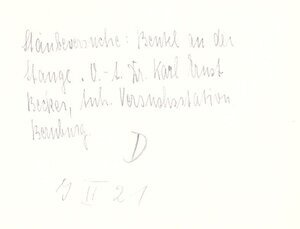 Stäubeversuche: Beutel an der
Stange. V.-l. Dr. Karl Ernst
Becker, Inh. Versuchsstation
Bernburg.
D
J II 21